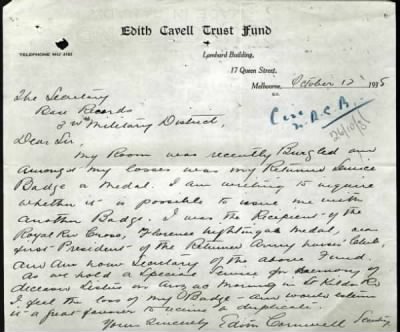 Edith Cavell Trust Fund
TELEPHONE MU 4161
Lombard Building,
17 Queen Street,
Melbourne, October 12 1938
The Secretary
Base Records
3rd Military District,
Dear Sir,
My Room was recently Burgled and
amongst my losses was my Returned Service
Badge & Medal. I am writing to inquire
whether it is possible to issue me with
another Badge. I was the Recipient of the
Royal Red Cross, Florence Nightingale Medal, was
first President of the Returned Army Nurses Club,
and am now Secretary of the above Fund.
As we hold a Special Service for memory of
deceased Sisters on Anzac Morning in St Kilda Rd
I feel the loss of my Badge and would esteem
it a great favour to receive a duplicate.
Yours Sincerely Secretary